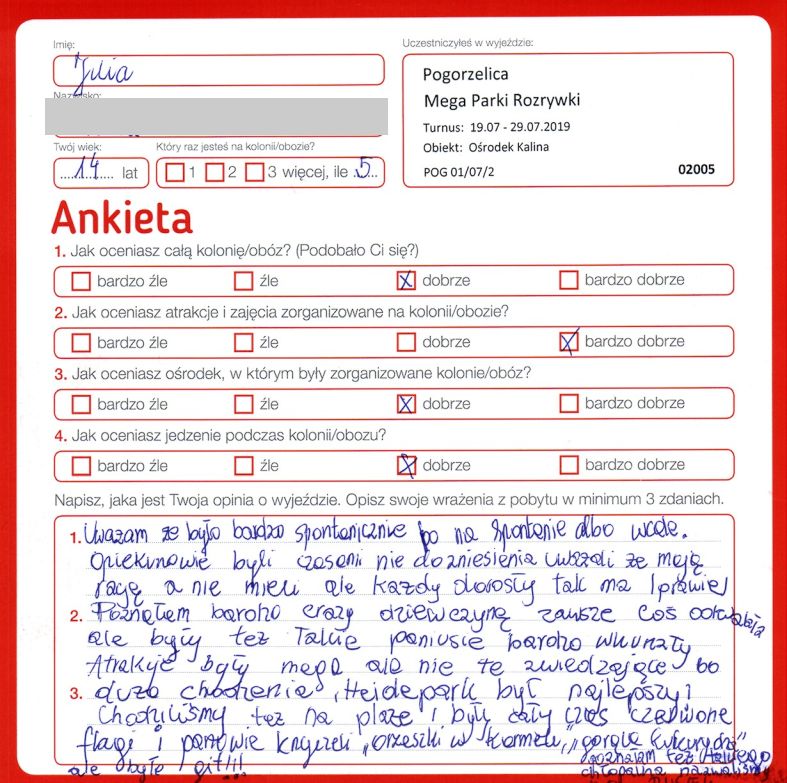 Imię:
Julia
Nazwisko:
Uczestniczyłeś w wyjeździe:
Pogorzelica
Mega Parki Rozrywki
Turnus: 19.07 - 29.07.2019
Obiekt: Ośrodek Kalina
POG 01/07/2 02005
Twój wiek: Który raz jesteś na kolonii/obozie?
14 lat 1 2 3 więcej, ile 5
Ankieta
1. Jak oceniasz całą kolonię/obóz? (Podobało Ci się?)
bardzo źle źle dobrze bardzo dobrze
2. Jak oceniasz atrakcje i zajęcia zorganizowane na kolonii/obozie?
bardzo źle źle dobrze bardzo dobrze
3. Jak oceniasz ośrodek, w którym były zorganizowane kolonie/obóz?
bardzo źle źle dobrze bardzo dobrze
4. Jak oceniasz jedzenie podczas kolonii/obozu?
bardzo źle źle dobrze bardzo dobrze
Napisz, jaka jest Twoja opinia o wyjeździe. Opisz swoje wrażenia z pobytu w minimum 3 zdaniach.
1. Uważam że było bardzo spontanicznie bo na spontanie albo wcale.
Opiekunowie byli czasami nie do zniesienia uważali że mają
rację a nie mieli ale każdy dorosły tak ma (prawie)
2. Poznałam bardzo crazy dziewczynę zawsze coś
ale były też takie paniusie bardzo wkurzały
Atrakcje były mega ale nie te zwiedzające bo
3. dużo chodzenia, Heidepark był najlepszy!
Chodziliśmy też na plażę i były cały czas czerwone
flagi i panowie krzyczeli "orzeszki w karmelu", "gorąca kukurydza"
ale było git!!! poznałam też
chłopaka